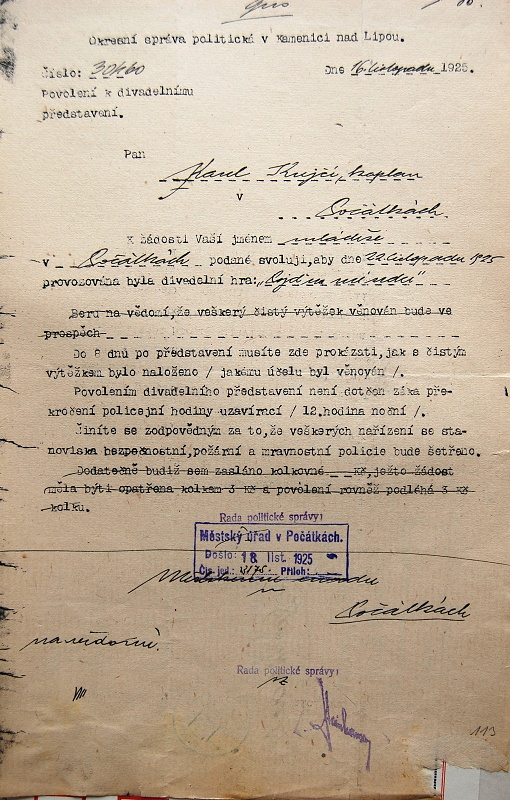 Okresní správa politická v Kamenici nad Lipou.
Číslo: 30460 Dne 16. listopadu 1925.
Povolení k divadelnímu
představení.
Pan
Karel Krejčí, kaplan
v
Počátkách
K žádosti Vaší jménem mládeže
v Počátkách podané svoluji, aby dne 22 listopadu 1925
provozována byla divadelní hra:"
Beru na vědomí, že veškerý čistý výtěžek věnován bude ve
prospěch
Do 8 dnů po představení musíte zde prokázati, jak s čistým
výtěžkem bylo naloženo / jakému účelu byl věnován /.
Povolením divadelního představení není dotčen záka pře-
kročení policejní hodiny uzavírací / 12.hodina noční /.
Činíte se zodpovědným za to, že veškerých nařízení se sta-
noviska bezpečnostní, požární a mravnostní policie bude šetřeno.
Dodatečně budiž sem zasláno kolkovné Kč, ježto žádost
měla býti opatřena kolkem 3 Kč a povolení rovněž podléhá 3 Kč
kolku.
Rada politické správy:
Městský úřad v Počátkách.
Došlo: 18 list. 1925
Čís. jed.: Příloh:
Městskému úřadu
v
Počátkách
na vědomí.
Rada politické správy:
113